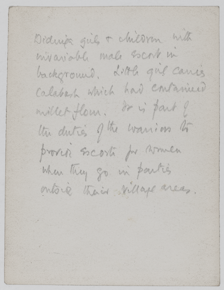 Dodinga girls & children with
invariable male escort in
background. Little girl carries
Calabash which had contained
millet flour. It is part of
the duties of the warriors to
provide escorts for women
when they go in parties
outside their village areas.